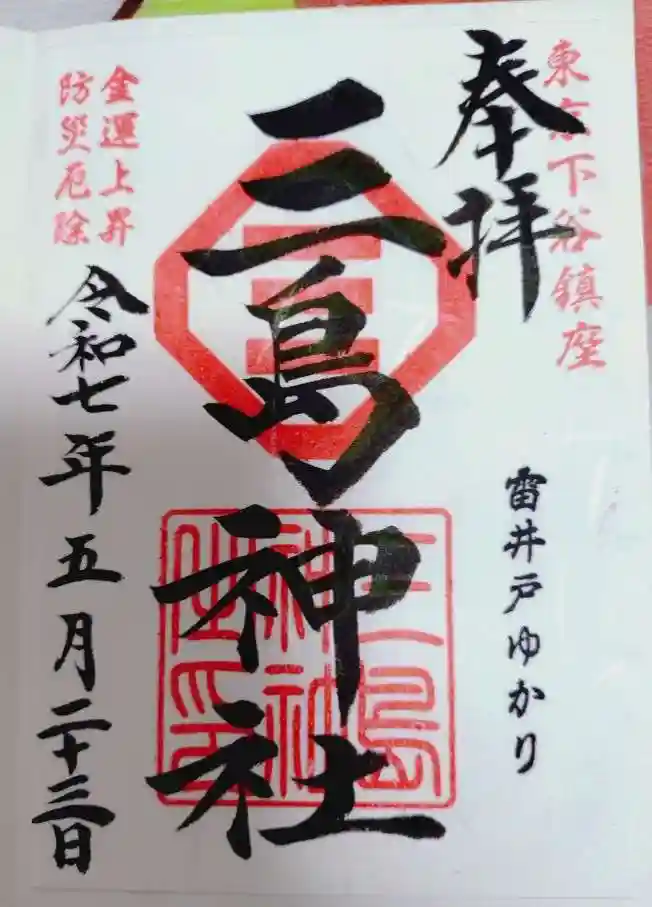 東京下谷鎮座
奉拝
雷井戸ゆかり
三島神社
三島神社
金運上昇
防災厄除
令和七年五月二十三日